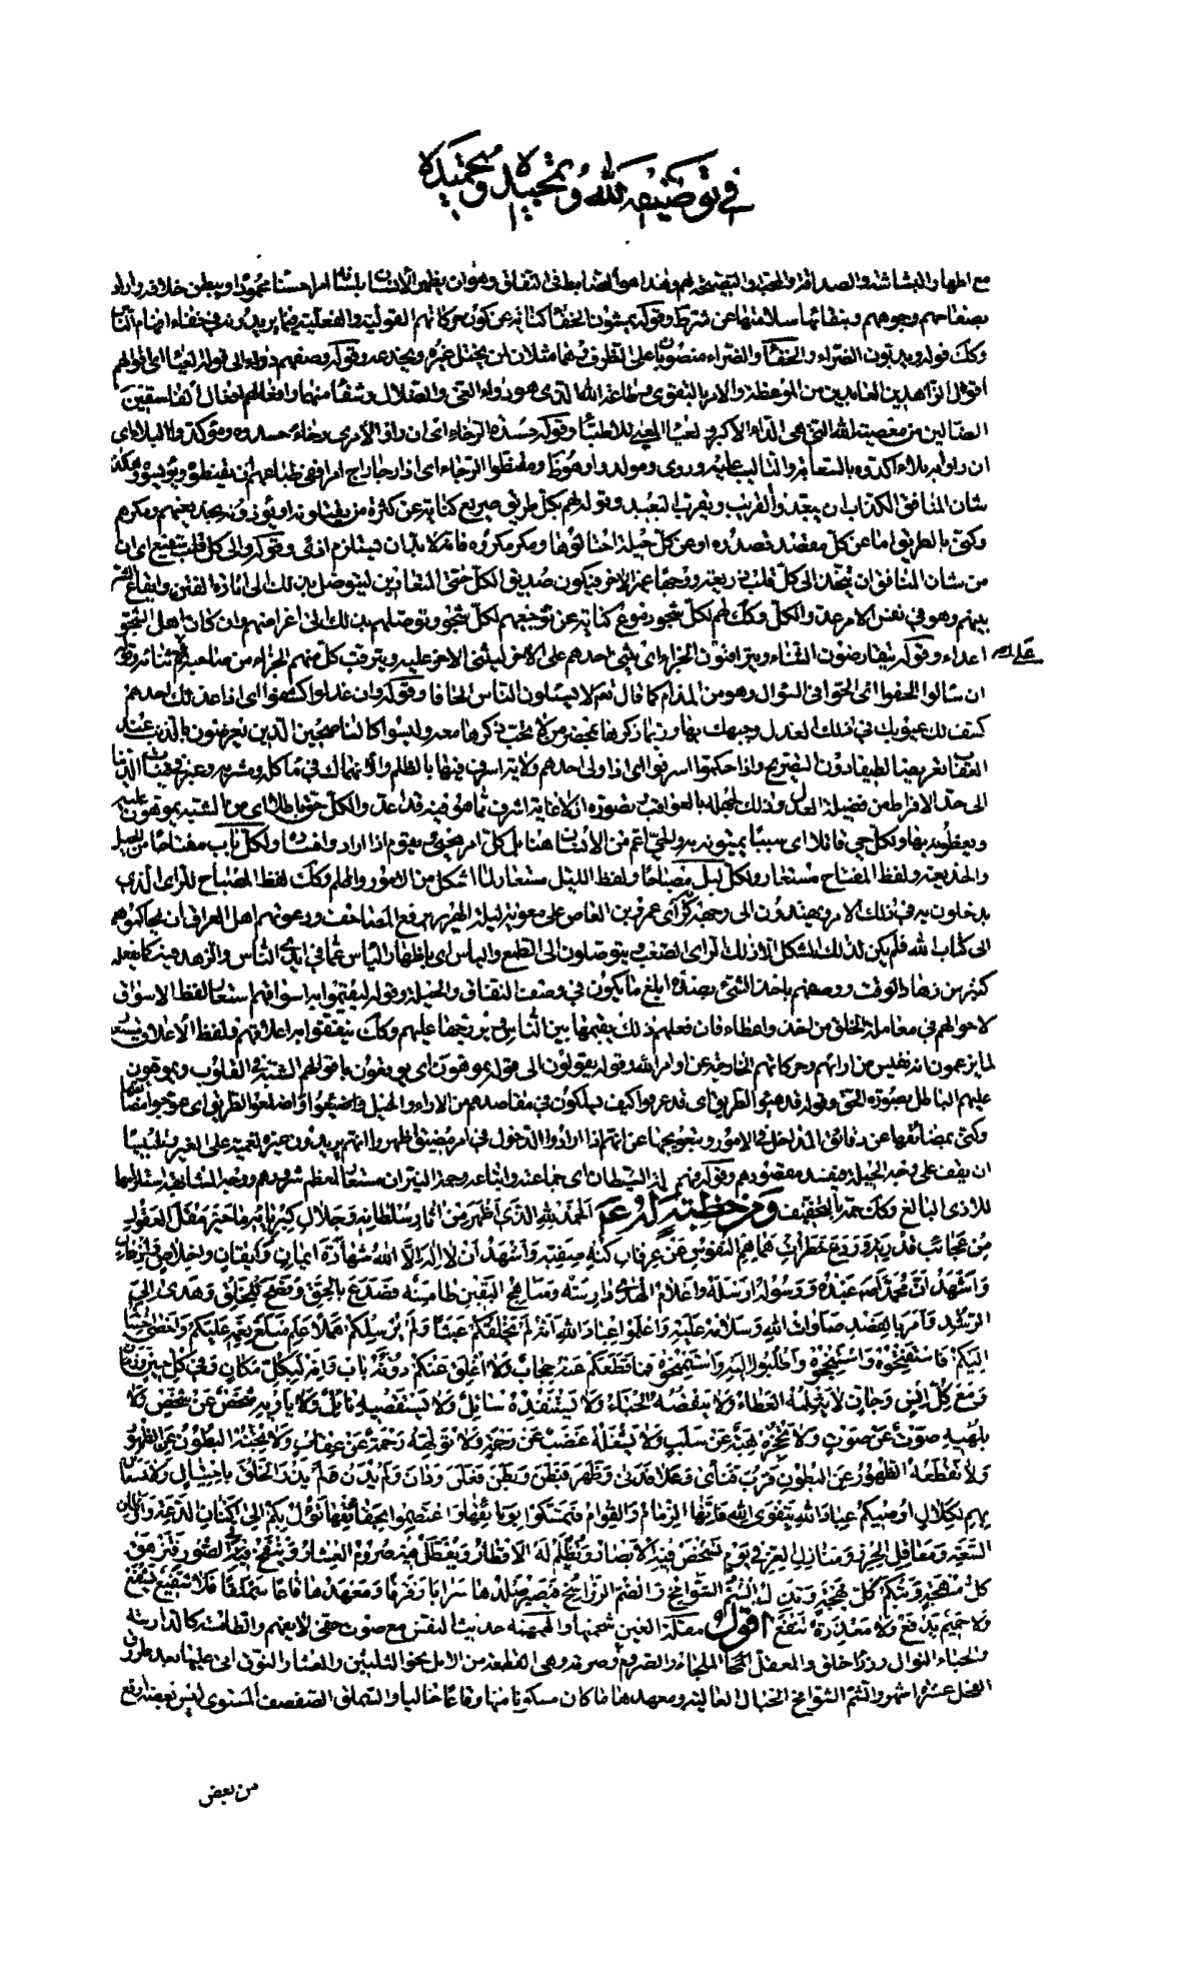 في توصيفه لله وتمجيده وتحميده
مع اظهار البشاشة والصداقة والمحبة والنصيحة لهم وهذا هو الضابط في النفاق وهو ان يظهر الانسان بلسانه امرا حسنا محمودا ويبطن خلافه واراد
بصفاحهم وجوههم وبنقائها سلامتها عن شر ظاهر وقوله يمشون الخفاء كناية عن كون حركاتهم القولية والفعلية فيما يريدونه في خفاء افهام الناس
وكذلك قوله ويدبون الضراء والخفاء والضراء منصوبان على الظرف وهما مثلان لمن يختل غيره ويخدعه وقوله وصفهم دواء الى قوله العياء اى اقوالهم
اقوال الزاهدين العابدين من الموعظة والامر بالتقوى وطاعة الله الذي هو دواء الغي والضلال وشفاء منهما وافعالهم افعال الفاسقين
الضالين من معصية الله التي هي الداء الاكبر والعياء المعيي للاطباء وقوله حسدة الرخاء اى ان راوا لامرئ رخاء حسدوه ومؤكدوا البلاء اى
ان راوا به بلاء اكدوه بالسعاية والتاليب عليه وروى ومولدوا وهو ظاهر ومقنطوا الرجاء اى اذا رجا راج امرا ففي طباعهم ان يقنطوه ويؤيسوه وهكذا
شان المنافق الكذاب ان يبعد القريب ويقرب البعيد وقوله لهم بكل طريق صريع كناية عن كثرة من يقتلونه او يؤذونه بخديعتهم ومكرهم
وكنى بالطريق اما عن كل مقصد قصدوه او عن كل حيلة احتالوها ومكر مكروه فانه لا بد ان يستلزم اذى وقوله والى كل قلب شفيع اى ان
من شان المنافق ان يتخذ الى كل قلب ذريعة ووجها غير الاخر فيكون صديق الكل حتى المتعادين ليتوصل بذلك الى اثارة الفتن وايقاع الشر
بينهم وهو في نفس الامر عدو الكل وكذلك لهم لكل شجو دموع كناية عن توجعهم لكل شجو وتوصلهم بذلك الى اغراضهم وان كان اهل الشجو
اعداء وقوله يتقارضون الثناء ويتراقبون الجزاء اى يثني احدهم على الاخر ليثني الاخر عليه ويترقب كل منهم الجزاء من صاحبه على ثنائه وقوله
ان سالوا الحفوا اى الحوا في السؤال وهو من المذام كما قال تعالى لا يسئلون الناس الحافا وقوله وان عذلوا كشفوا اى اذا عذلك احدهم
كشف لك عيوبك في ذلك العذل وجبهك بها وربما ذكرها بمحضر من لا تحب ذكرها معه وليسوا كالناصحين الذين يعرضون بالذنب عند
العتاب تعريضا لطيفا دون التصريح واذا حكموا اسرفوا اى اذا ولى احدهم ولاية اسرف فيها بالظلم والانهماك في مأكله ومشربه وعبر في قينات الدنيا
الى حد الافراط من فضيلة العدل وذلك لجهله بالعواقب وتصوره ان لا غاية اشرف مما هو فيه قد اعدوا لكل حق باطلا اى من الشبه يموهون عليه
ويغطونه بها ولكل حي قاتلا اى سببا يميتونه به والحي اعم من الانسان هنا بل كل امر حي يقوم اذا ارادوا فساده ولكل باب مفتاحا من الحيل
والخديعة ولفظ المفتاح مستعار ولكل ليل مصباحا ولفظ الليل مستعار لما اشكل من الامور واظلم وكذلك لفظ المصباح للراى الذي
يدخلون به في ذلك الامر ويهتدون الى وجهه كراى عمرو بن العاص على معوية ليلة الهرير برفع المصاحف ودعوتهم اهل العراق ان يحاكموهم
الى كتاب الله فلم يكن لذلك المشكل الا ذلك الراى الصعب يتوصلون الى الطمع والياس اى باظهار الياس عما في ايدى الناس والزهد فيه كما يفعله
كثير من زهاد الوقت ووصفهم باخذ الشيء بضده ابلغ ما يكون في وصف النفاق والحيلة وقوله ليقيموا به اسواقهم استعار لفظ الاسواق
لاحوالهم في معاملة الخلق من اخذ واعطاء فان فعلهم ذلك يقيمها بين الناس ويروجها عليهم وكذلك ينفقوا به اعلاقهم ولفظ الاعلاق مستعار
لما يزعمون انه نفيس من ارائهم وحركاتهم الخارجة عن اوامر الله وقوله يقولون الى قوله يموهون اى يوقعون باقوالهم الشبه في القلوب ويموهون
عليهم الباطل بصورة الحق وقوله قد هيئوا الطريق اى قد عرفوا كيف يسلكون في مقاصدهم من الاراء والحيل واضلعوا المضيق اى عوجوا مضايقها
وكنى بمضائقها عن دقائق المداخل في الامور وبتعويجها عن انهم اذا ارادوا الدخول في امر مضيق اظهروا انهم يريدون غيره تعمية على الغير وتلبيسا
ان يقف على وجه الحيلة فيفسد مقصودهم وقوله فهم لمة الشيطان اى جماعته واتباعه وحمة النيران مستعار لمعظم شرورهم ووجه المشابهة استلزامها
للاذى البالغ وكذلك حمة بالتخفيف ومن خطبة له ع م الحمد لله الذي اظهر من اثار سلطانه وجلال كبريائه ما حير مقل العقول
من عجائب قدرته وردع خطرات هماهم النفوس عن عرفان كنه صفته واشهد ان لا اله الا الله شهادة ايمان وايقان واخلاص واذعان
واشهد ان محمدا ص عبده ورسوله ارسله واعلام الهدى دارسة ومناهج الدين طامسة فصدع بالحق ونصح للخلق وهدى الى
الرشد وامر بالقصد صلوات الله وسلامه عليه واعلموا عباد الله انه لم يخلقكم عبثا ولم يرسلكم هملا علم مبلغ نعمه عليكم واحصى احسانه
اليكم فاستفتحوه واستنجحوه واطلبوا اليه واستمنحوه فما قطعكم عنه حجاب ولا اغلق عنكم دونه باب وانه لبكل مكان وفي كل حين واوان
ومع كل انس وجان لا يثلمه العطاء ولا ينقصه الحباء ولا يستنفده سائل ولا يستقصيه نائل ولا يلويه شخص عن شخص ولا
يلهيه صوت عن صوت ولا تحجزه هبة عن سلب ولا يشغله غضب عن رحمة ولا تولهه رحمة عن عقاب ولا يجنه البطون عن الظهور
ولا يقطعه الظهور عن البطون قرب فنأى وعلا فدنى وظهر فبطن وبطن فعلن ودان ولم يدن لم يذرء الخلق باحتيال ولا استعان
بهم لكلال اوصيكم عباد الله بتقوى الله فانها الزمام والقوام فتمسكوا بوثائقها واعتصموا بحقائقها تؤل بكم الى اكنان الدعة واوطان
السعة ومعاقل الحرز ومنازل العز في يوم تشخص فيه الابصار وتظلم له الاقطار وتعطل فيه صروم العشار وينفخ في الصور فتزهق
كل مهجة وتبكم كل لهجة وتذل الشم الشوامخ والصم الرواسخ فيصير صلدها سرابا رقرقا ومعهدها قاعا سملقا فلا شفيع يشفع
ولا حميم يدفع ولا معذرة تنفع اقول مقلة العين شحمتها والهمهمة حديث النفس مع صوت خفي لا يفهم والطامسة كالدارسة
والحباء النوال وذرأ خلق والمعقل الملجأ والصروم وصرمة وهي القطعة من الابل نحو الثلثين والعشار النوق اتى عليها بعد طروق
الفحل عشرة اشهر والشم الشوامخ الجبال العالية ومعهدها ما كان مسكونا منها وقاعا خاليا والسملق الصفصف المستوى ليس بعضه ارفع
من بعض